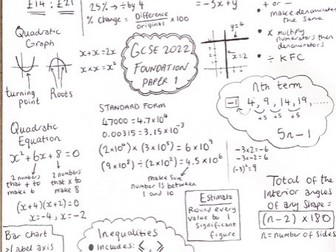 £14 : £21
25% → ÷ by 4
% change = Difference
original
×100
= -5x + y
+ or -
make denominators
the same
× multiply
numerators then
denominators
÷ KFC
Quadratic
Graph
turning
point
Roots
x+x=2x
x×x=x²
GCSE 2022
FOUNDATION
PAPER 1
y=4
nth term
-1 4, 9, 14, 19, ...
+5 +5 +5
5n-1
STANDARD FORM
47000 = 4.7×10⁴
0.00315 = 3.15×10⁻³
(2×10⁶)×(3×10³) = 6×10⁹
(9×10⁸)÷(2×10²) = 4.5×10⁶
make sure
number is between
1 and 10
Quadratic
Equation
x²+6x+8=0
2 numbers
that + to
make 6
2 numbers
that × to
make 8
(x+4)(x+2)=0
x=-4, x=-2
-3×2=-6
-3×-2=6
(-3)²=9
Estimate
Round every
value to 1
significant
figure
Total of the
interior angles
of any shape =
(n-2)×180
n=number of sides
Bar Chart
>label axis
Inequalities
• Includes: